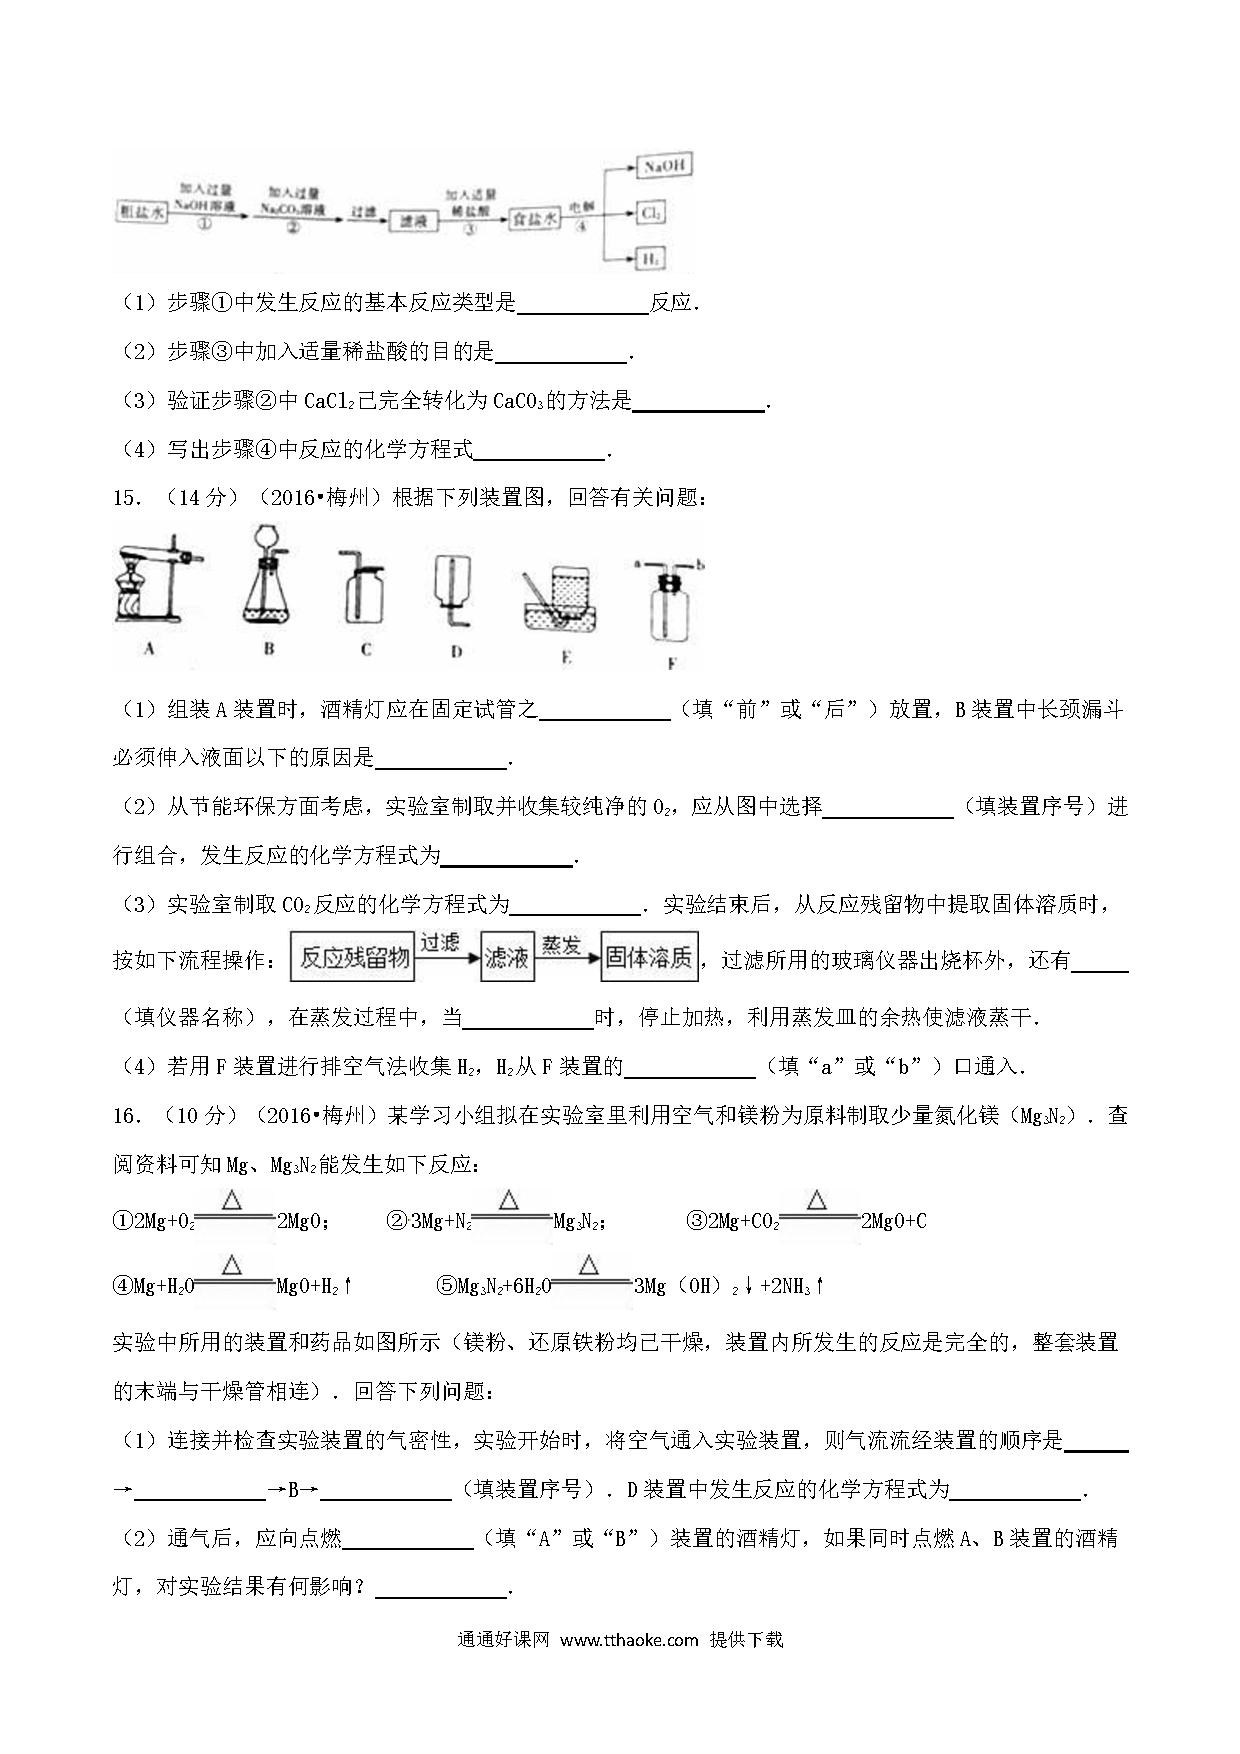 NaOH
加入过量 加入过量 加入适量
粗盐水 NaOH溶液 Na₂CO₃溶液 过滤 滤液 稀盐酸 食盐水 电解 Cl₂
① ② ③ ④
H₂
（1）步骤①中发生反应的基本反应类型是____________反应．
（2）步骤③中加入适量稀盐酸的目的是____________．
（3）验证步骤②中CaCl₂已完全转化为CaCO₃的方法是____________．
（4）写出步骤④中反应的化学方程式____________．
15．（14分）（2016•梅州）根据下列装置图，回答有关问题：
a b
A B C D E F
（1）组装A装置时，酒精灯应在固定试管之____________（填“前”或“后”）放置，B装置中长颈漏斗
必须伸入液面以下的原因是____________．
（2）从节能环保方面考虑，实验室制取并收集较纯净的O₂，应从图中选择____________（填装置序号）进
行组合，发生反应的化学方程式为____________．
（3）实验室制取CO₂反应的化学方程式为____________．实验结束后，从反应残留物中提取固体溶质时，
按如下流程操作：反应残留物 过滤→ 滤液 蒸发→ 固体溶质，过滤所用的玻璃仪器出烧杯外，还有_____
（填仪器名称），在蒸发过程中，当____________时，停止加热，利用蒸发皿的余热使滤液蒸干．
（4）若用F装置进行排空气法收集H₂，H₂从F装置的____________（填“a”或“b”）口通入．
16．（10分）（2016•梅州）某学习小组拟在实验室里利用空气和镁粉为原料制取少量氮化镁（Mg₃N₂）．查
阅资料可知Mg、Mg₃N₂能发生如下反应：
①2Mg+O₂ △═ 2MgO； ②3Mg+N₂ △═ Mg₃N₂； ③2Mg+CO₂ △═ 2MgO+C
④Mg+H₂O △═ MgO+H₂↑ ⑤Mg₃N₂+6H₂O △═ 3Mg（OH）₂↓+2NH₃↑
实验中所用的装置和药品如图所示（镁粉、还原铁粉均已干燥，装置内所发生的反应是完全的，整套装置
的末端与干燥管相连）．回答下列问题：
（1）连接并检查实验装置的气密性，实验开始时，将空气通入实验装置，则气流流经装置的顺序是______
→____________→B→____________（填装置序号）．D装置中发生反应的化学方程式为____________．
（2）通气后，应向点燃____________（填“A”或“B”）装置的酒精灯，如果同时点燃A、B装置的酒精
灯，对实验结果有何影响？____________．
通通好课网 www.tthaoke.com 提供下载